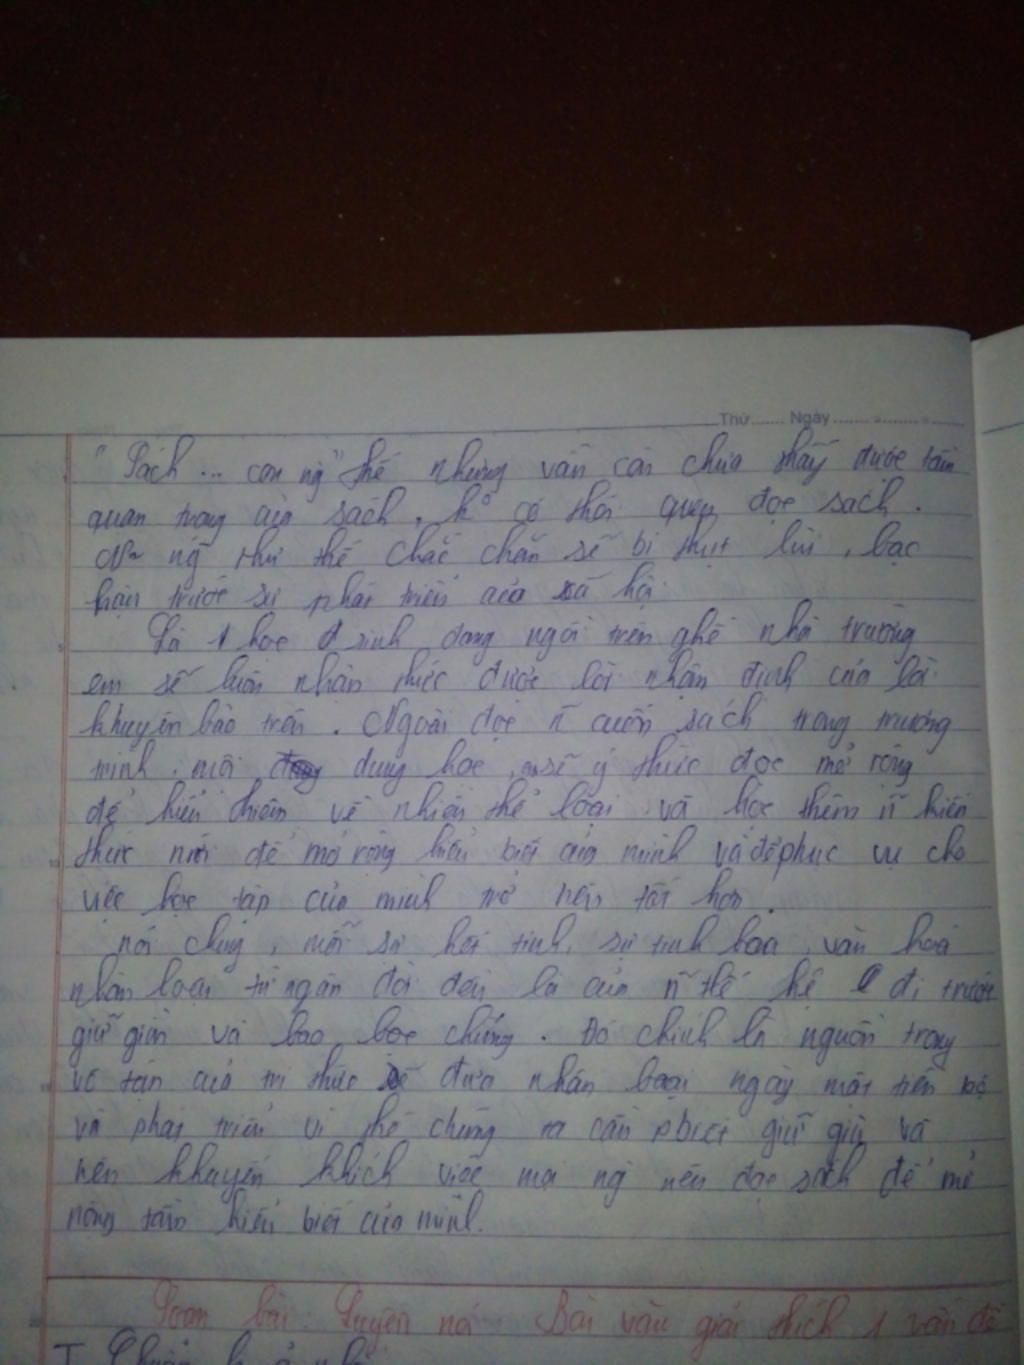 Thứ...... Ngày ....... - ....... - .......
"Sách ... con ng" thế nhưng vẫn còn chưa thấy được tầm
quan trọng của sách, k° có thói quen đọc sách.
ng như thế chắc chắn sẽ bị thụt lùi, lạc
hậu trước sự phát triển của xã hội.
Là 1 học sinh đang ngồi trên ghế nhà trường
em sẽ luôn nhận thức được lời nhận định của lời
khuyên bảo trên. Ngoài đọc n~ cuốn sách trong trương
trình, nội dung học, em sẽ ý thức đọc mở rộng
để hiểu thêm về nhiều thể loại và học thêm n~ kiến
thức mới để mở rộng hiểu biết của mình và để phục vụ cho
việc học tập của mình trở nên tốt hơn.
nói chung, mỗi sự kết tinh, sự tinh hoa, văn hoá
nhân loại từ ngàn đời đến là của n~ thế hệ đi trước
giữ gìn và bao bọc chúng. Đó chính là nguồn trong
vô tận của tri thức để đưa nhân loại ngày một tiến bộ
và phát triển vì thế chúng ta cần phải giữ gìn và
nên khuyến khích việc mọi ng nên đọc sách để mở
rộng tầm hiểu biết của mình.
Soạn bài: Luyện nói: Bài văn giải thích 1 vấn đề
I. Chuẩn bị ở nhà